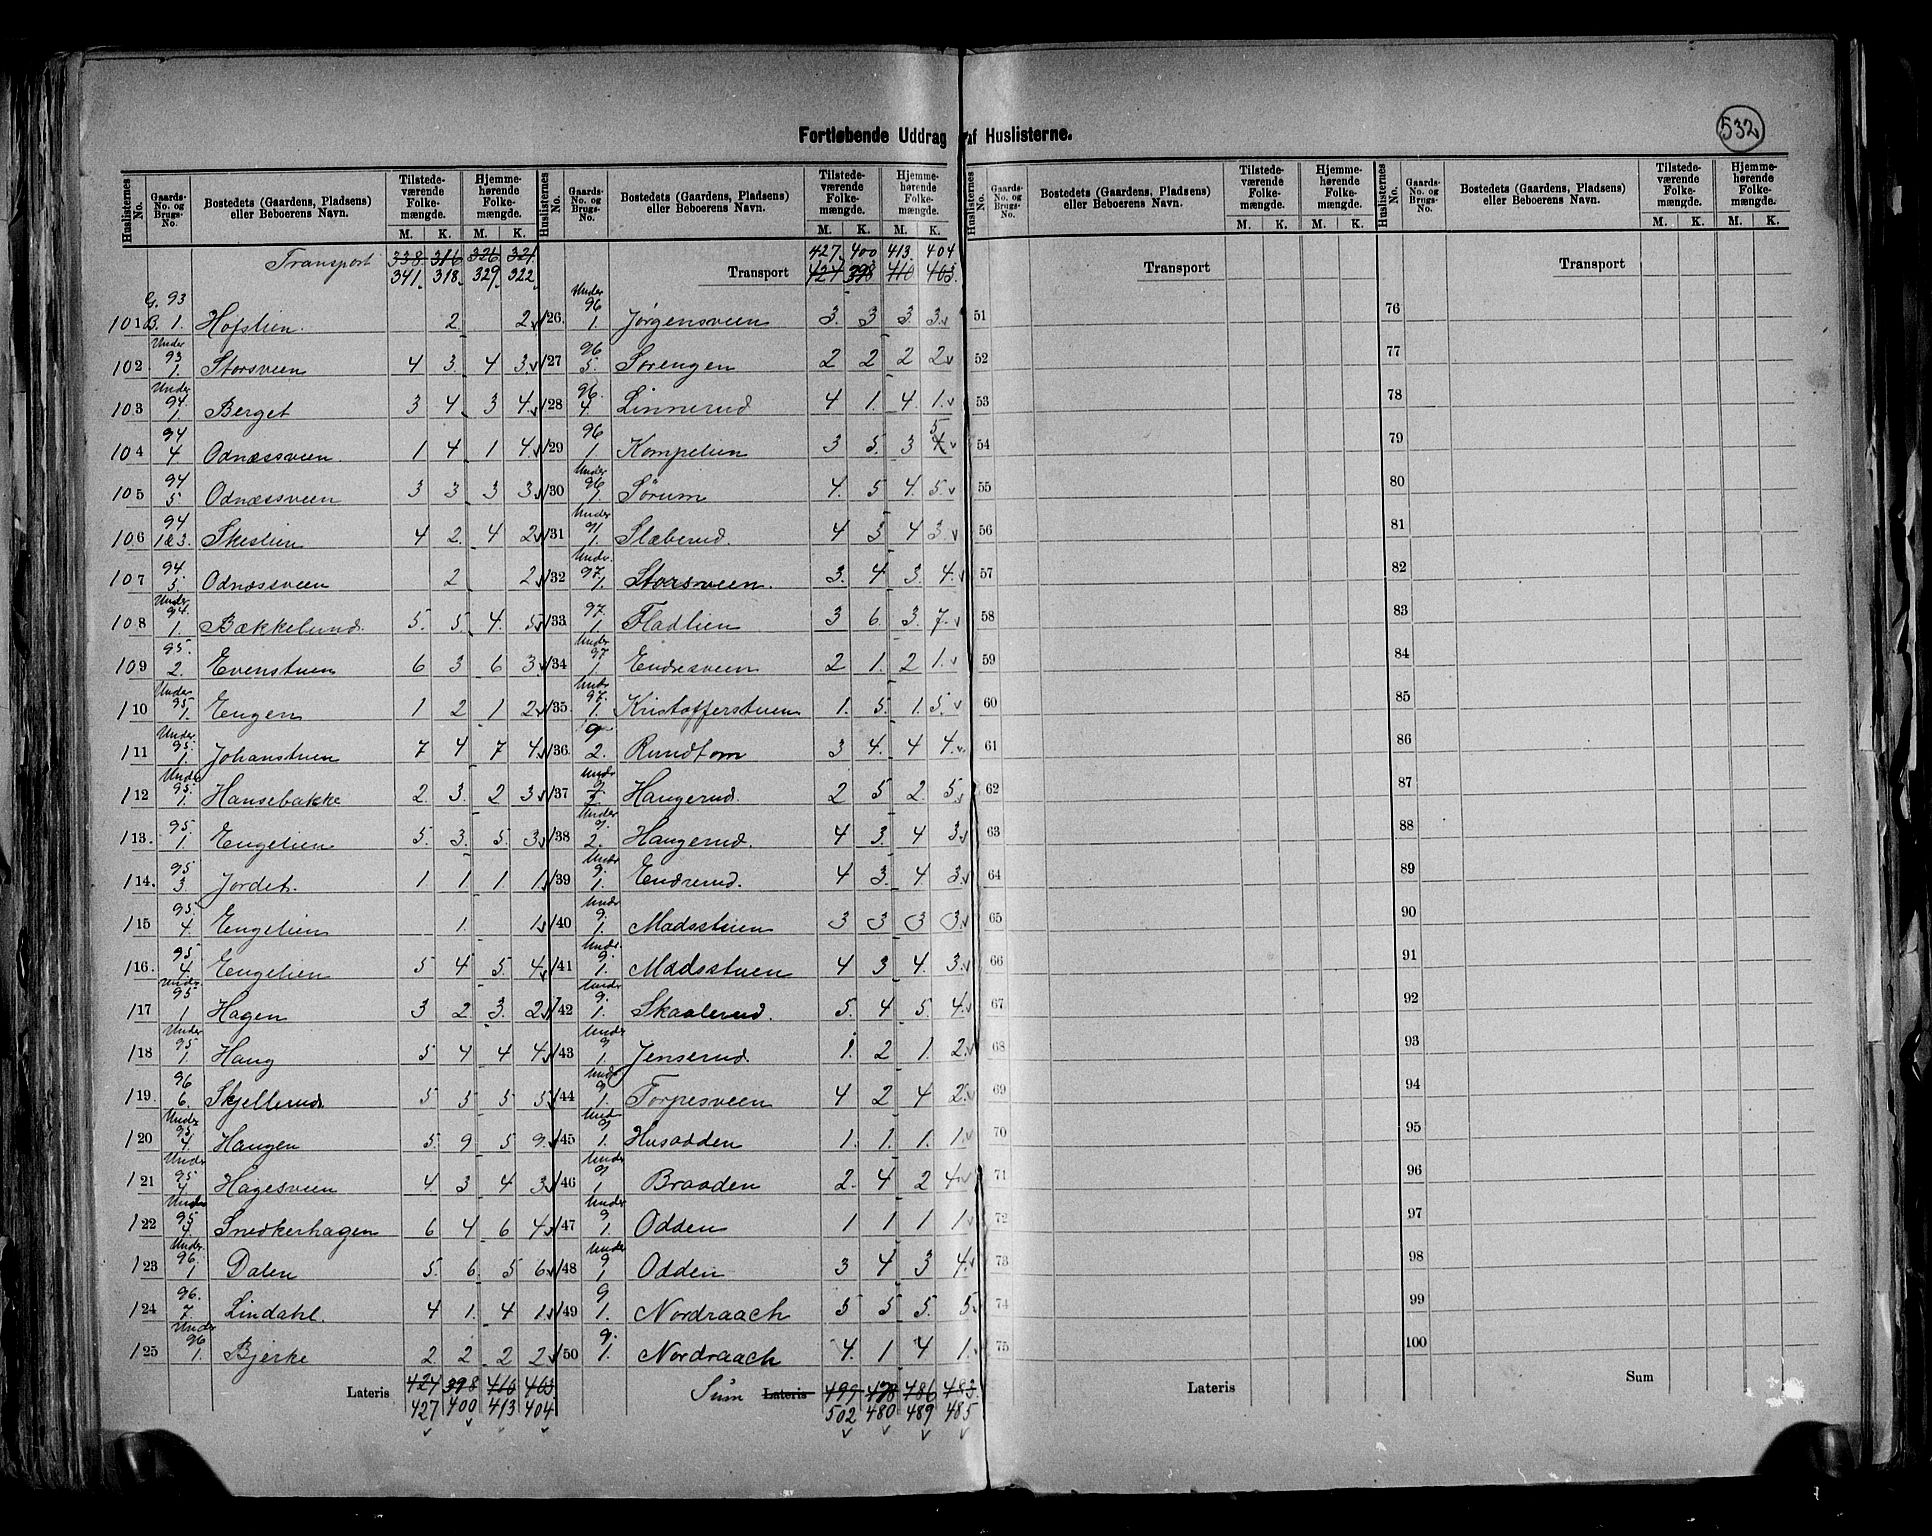 Fortløbende Uddrag af Huslisterne.
532
Huslisternes No. | Gaards-No. og Brugs-No. | Bostedets (Gaardens, Pladsens) eller Beboerens Navn. | Tilstedeværende Folkemængde. M. K. | Hjemmehørende Folkemængde. M. K.
Transport 338. 316 326. 321.
341. 318. 329. 322.
101 G. 93 B. 1. Hofslien. 2. 2
102 Under 93 1. Storsveen 4 3. 4 3
103 Under 94 1. Berget 3 4 3 4
104 94 4 Odnæssveen. 1 4 1 4
105 94 5 Odnæssveen 3 3 3 3
106 94 1&3. Skeslien 4 2. 4 2
107 94 5. Odnæssveen 2 2
108 Under 94. 1. Bækkelund. 5. 5. 4. 5
109 95. 2. Evenstuen 6 3 6 3
110 Under 95 1. Engen 1 2 1 2
111 Under 95. 1. Johanstuen 7 4 7 4
112 Under 95. 1. Hansebakke 2. 3. 2 3
113. 95. 1 Engelien 5. 3. 5. 3
114. 95 3 Jordet. 1 1 1 1
115 95. 4. Engelien 1. 1
116. 95 4. Engelien 5 4 5. 4
117 Under 95 1 Hagen 3 2 3. 2
118 Under 95 1. Haug 5 4 4 4
119. 96 6. Skjellerud 5 5 5 5
120 Under 95. 4. Haugen 5. 9 5 9.
121 Under 95 4 Hagesveen 4. 3 4 3
122 Under 95 4. Snedkerhagen 6 4 6 4
123 Under 96. 1 Dalen 5. 6. 5 6
124 96. 7 Lindahl. 4 1. 4 1
125 Under 96 1. Bjerke 2 2 2 2
Lateris 424 398 410 403
427 400 413 404
427. 400 413. 404
Transport 424 398 410 403.
126. Under 96 1. Jørgensveen 3. 3 3. 3
127 96 5. Sørengen 2 2 2 2
128 96. 4. Linnerud 4 1. 4. 1
129 96 1 Kompelien 3 5. 3 4 5
130 Under 96 1. Sørum 4. 5 4. 5.
131 Under 91 1. Slæberud. 4 3 4 3
132 Under. 97. 1. Storsveen. 3. 4 3. 4.
133 97. 1. Fladlien 3 6. 3. 7.
134 Under 97 1. Endresveen 2 1. 2 1.
135 Under 97. 1. Kristofferstuen 1. 5. 1. 5.
136. 9 2. Rundtom 3 4. 4 4.
137 Under 9. 2. Haugerud. 2 5 2. 5
138 Under 9. 2. Haugerud. 4 3. 4 3
139 Under 9. 1. Endrerud. 4 3. 4. 3
140 Under 9. 1. Madsstuen 3 3 3 3
141 Under 9. 1. Madsstuen 4 3 4. 3
142 Under 9. 1. Skaalerud. 5. 4 5. 4
143 Under 9 1. Jenserud. 1. 2 1. 2.
144 Under 9 1. Torpesveen 4 2 4 2
145 Under 9 1. Husodden 1. 1. 1. 1
146 Under 9 1 Braaden 2. 4 2 4
147 Under 9 1. Odden 1 1 1 1
148 Under 9 1 Odden 3 4 3 4
149 9 1. Nordraach 5 5 5. 5
150 9. 1. Nordraach 4. 1 4 1.
Sum Lateris 499 478 486 483
502 480 489 485
Huslisternes No. | Gaards-No. og Brugs-No. | Bostedets (Gaardens, Pladsens) eller Beboerens Navn. | Tilstedeværende Folkemængde. M. K. | Hjemmehørende Folkemængde. M. K.
Transport
51
52
53
54
55
56
57
58
59
60
61
62
63
64
65
66
67
68
69
70
71
72
73
74
75
Lateris
Transport
76
77
78
79
80
81
82
83
84
85
86
87
88
89
90
91
92
93
94
95
96
97
98
99
100
Sum